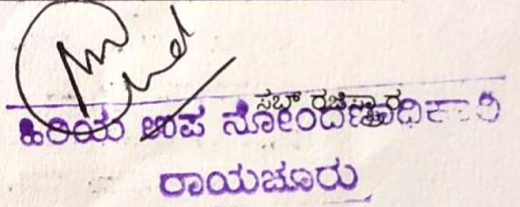 ಸಬ್ ರಜಿಸ್ಟ್ರಾರ
ಹಿರಿಯ ಉಪ ನೋಂದಣಾಧಿಕಾರಿ
ರಾಯಚೂರು